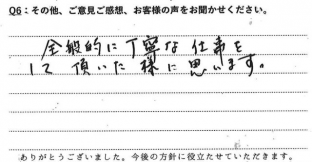 Q6：その他、ご意見ご感想、お客様の声をお聞かせください。
全般的に丁寧な仕事を
して頂いた様に思います。
ありがとうございました。今後の方針に役立たせていただきます。